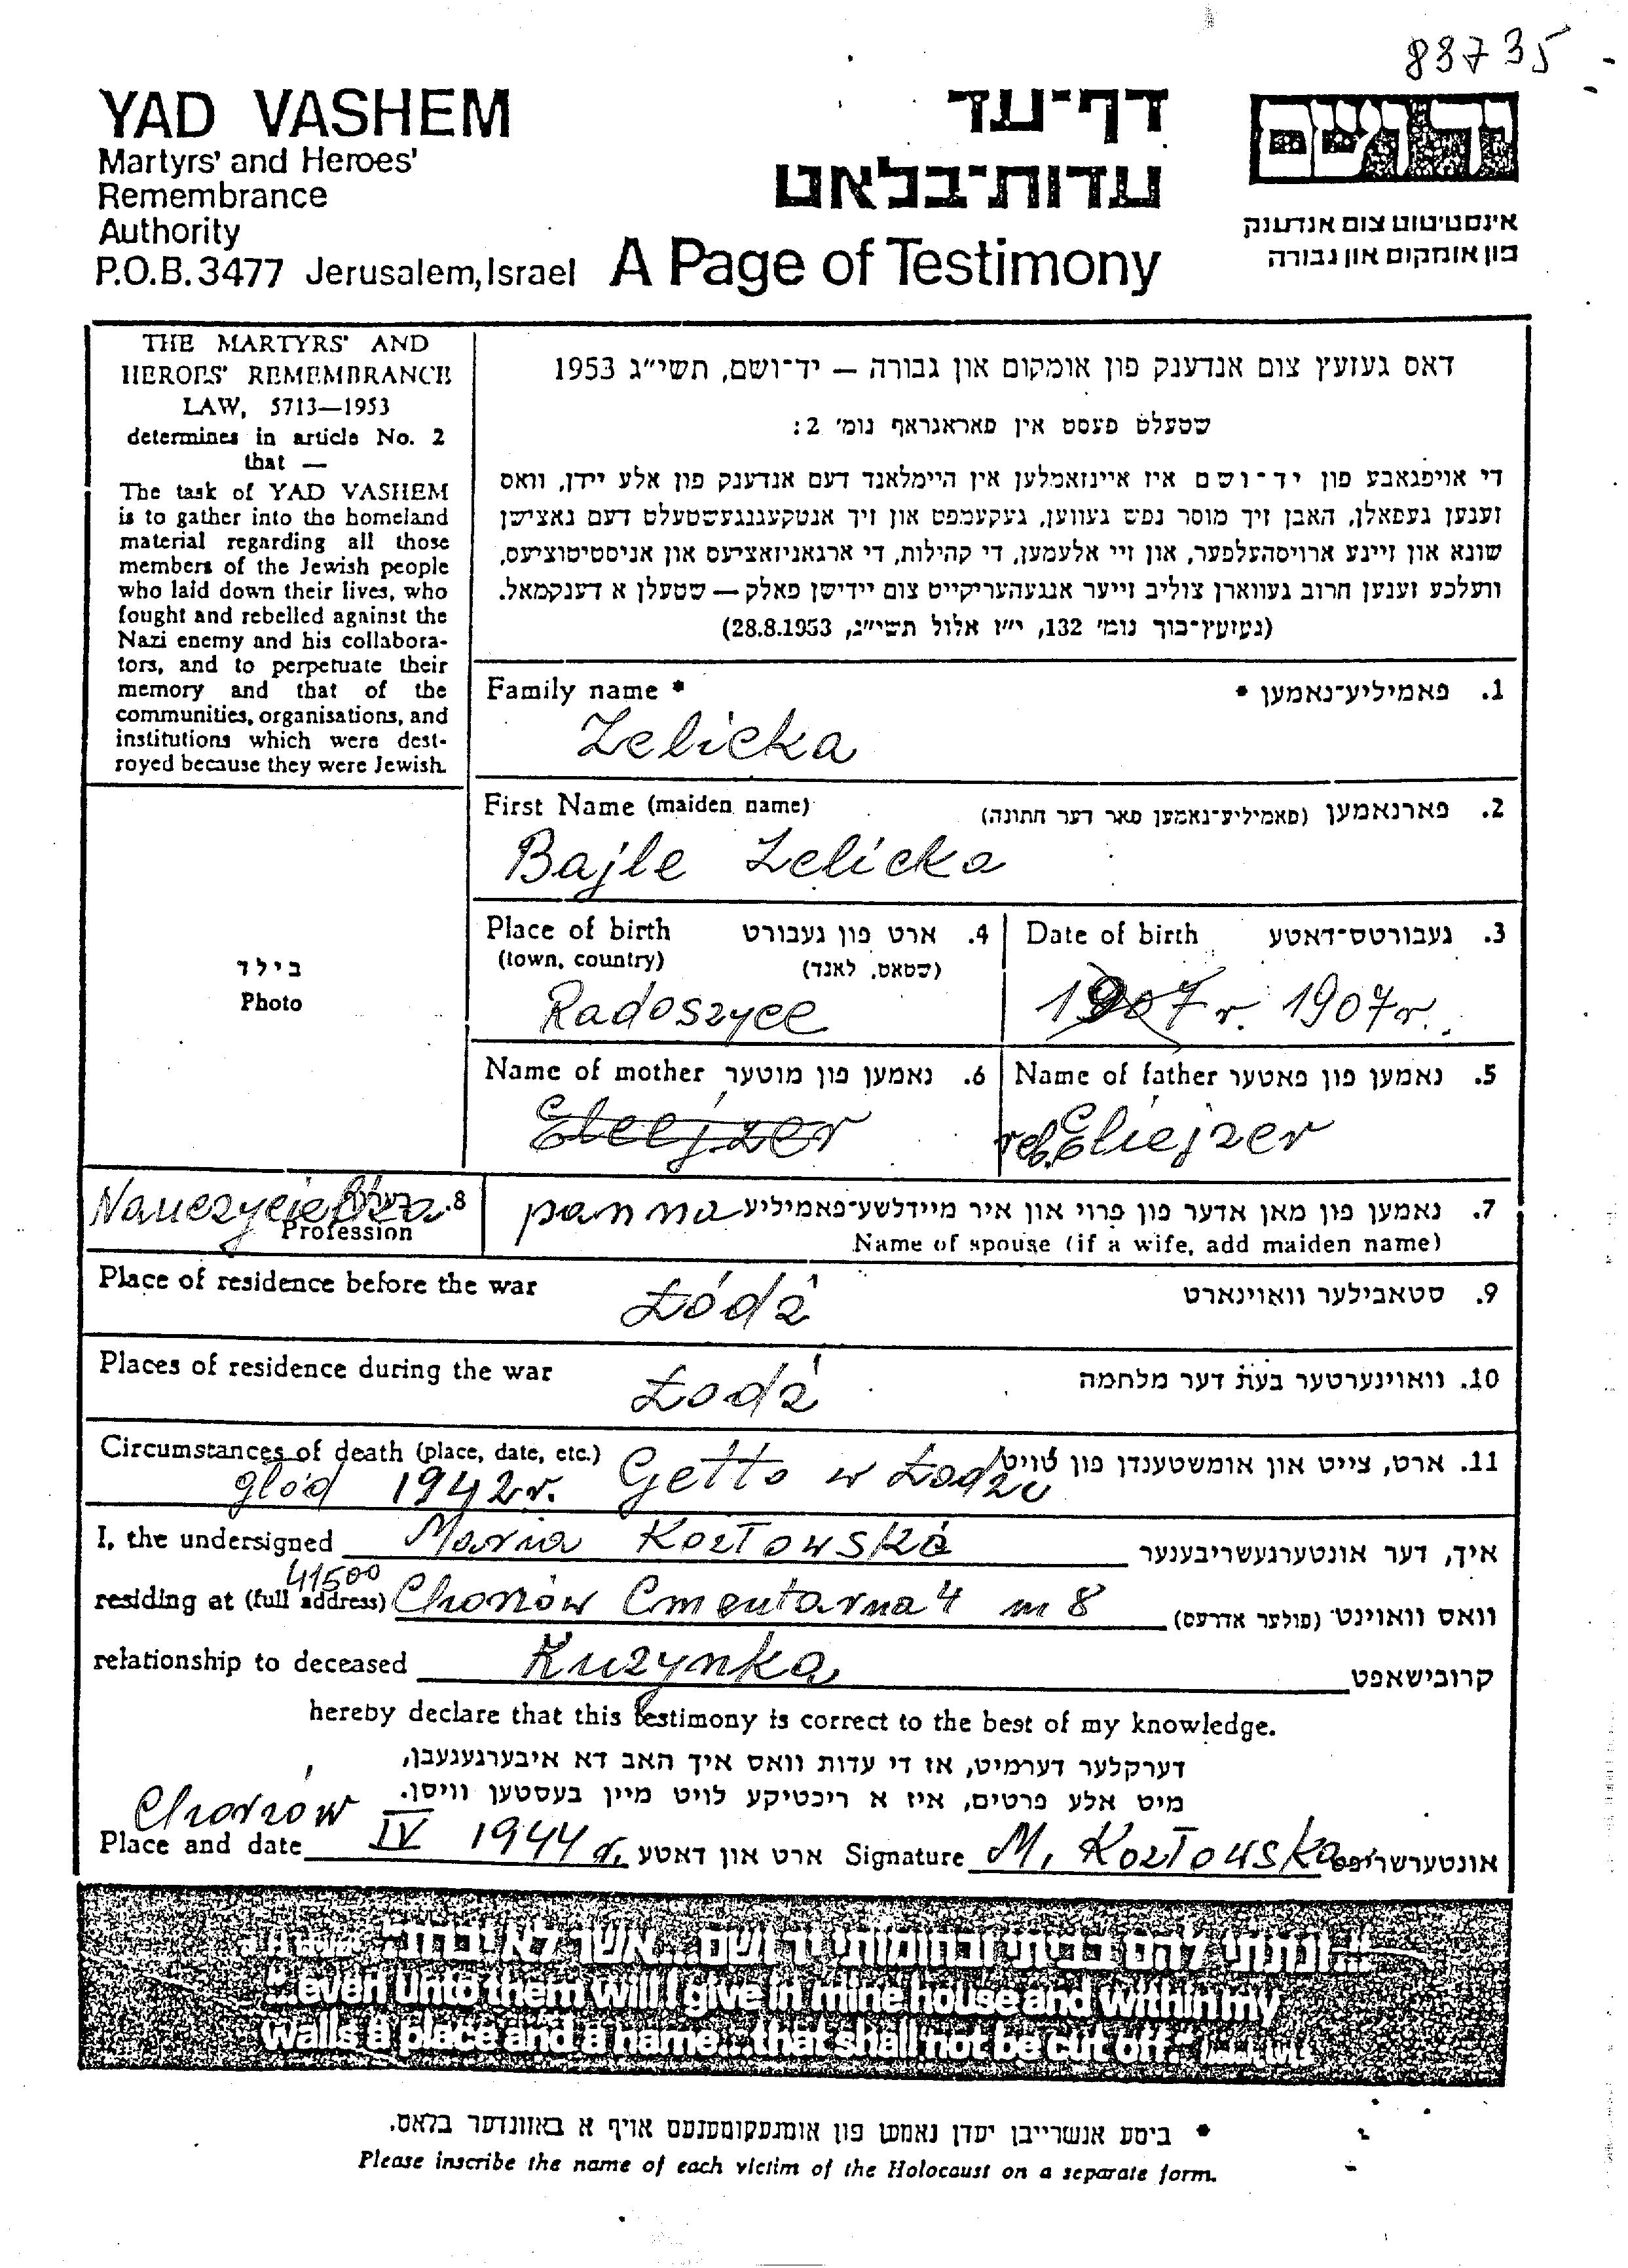 83735
YAD VASHEM
Martyrs' and Heroes'
Remembrance
Authority
P.O.B. 3477 Jerusalem, Israel
דף־עד
עדות־בלאט
A Page of Testimony
יד ושם
אינסטיטוט צום אנדענק
פון אומקום און גבורה
THE MARTYRS' AND
HEROES' REMEMBRANCE
LAW, 5713—1953
determines in article No. 2
that —
The task of YAD VASHEM
is to gather into the homeland
material regarding all those
members of the Jewish people
who laid down their lives, who
fought and rebelled against the
Nazi enemy and his collabora-
tors, and to perpetuate their
memory and that of the
communities, organisations, and
institutions which were dest-
royed because they were Jewish.
דאס געזעץ צום אנדענק פון אומקום און גבורה — יד־ושם, תשי״ג 1953
שטעלט פעסט אין פאראגראף נומ׳ 2:
די אויפגאבע פון יד־ושם איז איינזאמלען אין היימלאנד דעם אנדענק פון אלע יידן, וואס
זענען געפאלן, האבן זיך מוסר נפש געווען, געקעמפט און זיך אנטקעגנגעשטעלט דעם נאצישן
שונא און זיינע ארויסהעלפער, און זיי אלעמען, די קהילות, די ארגאניזאציעס און אניסטיטוציעס,
וועלכע זענען חרוב געווארן צוליב זייער אנגעהעריקייט צום יידישן פאלק — שטעלן א דענקמאל.
(געזעץ־בוך נומ׳ 132, י״ז אלול תשי״ג, 28.8.1953)
Family name *
1. פאמיליע־נאמען *
Zelicka
First Name (maiden name)
2. פארנאמען (פאמיליע־נאמען פאר דער חתונה)
Bajle Zelicka
Place of birth 4. ארט פון געבורט
(town, country) (שטאט, לאנד)
Radoszyce
Date of birth 3. געבורטס־דאטע
1907 r. 1907 r.
Name of mother 6. נאמען פון מוטער
Eliejzer
Name of father 5. נאמען פון פאטער
reb. Eliejzer
בילד
Photo
Nauczycielka 8.
Profession
panna
7. נאמען פון מאן אדער פון פרוי און איר מיידלשע־פאמיליע
Name of spouse (if a wife, add maiden name)
Place of residence before the war Łódź 9. סטאבילער וואוינארט
Places of residence during the war Łodź 10. וואוינערטער בעת דער מלחמה
Circumstances of death (place, date, etc.) 11. ארט, צייט און אומשטענדן פון טויט
głód 1942 r. Getto w Łodzi
I, the undersigned Maria Kozłowska איך, דער אונטערגעשריבענער
41500
residing at (full address) Chorzów Cmentarna 4 m 8 וואס וואוינט (פולער אדרעס)
relationship to deceased Kuzynka קרובישאפט
hereby declare that this testimony is correct to the best of my knowledge.
דערקלער דערמיט, אז די עדות וואס איך האב דא איבערגעגעבן,
מיט אלע פרטים, איז א ריכטיקע לויט מיין בעסטען וויסן.
Chorzów
Place and date IV 1944 r. ארט און דאטע Signature M. Kozłowska אונטערשריפט
"...ונתתי להם בביתי ובחומותי יד ושם...אשר לא יכרת"
"...even unto them will I give in mine house and within my
walls a place and a name...that shall not be cut off."
* ביטע אנשרייבן יעדן נאמען פון אומגעקומענעם אויף א באזונדער בלאט.
Please inscribe the name of each victim of the Holocaust on a separate form.